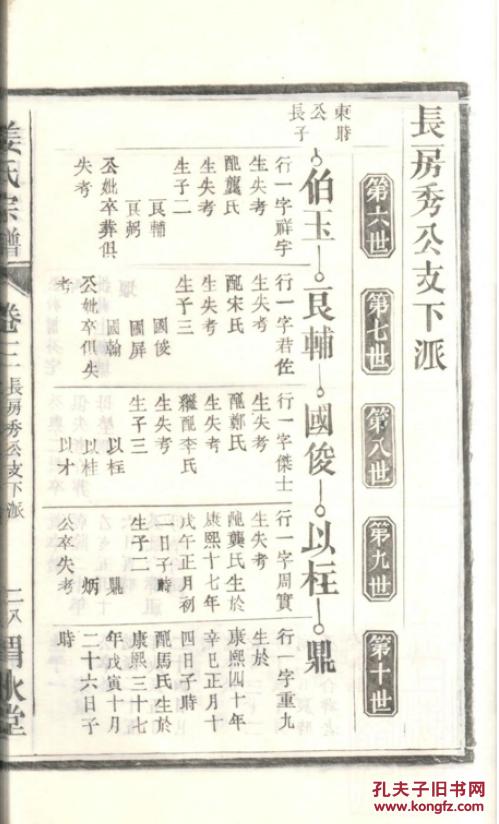 長房秀公支下派
第六世
第七世
第八世
第九世
第十世
東勝
公
長子
伯玉
艮輔
國俊
以枉
鼎
行一字祥宇
生失考
配龔氏
生失考
生子二
艮輔
艮弼
公妣卒葬俱
失考
行一字君佐
生失考
配宋氏
生失考
生子三
國俊
國屏
國翰
公妣卒俱失
考
行一字傑士
生失考
配鄭氏
生失考
繼配李氏
生失考
生子三
以枉
以桂
以才
行一字周實
生失考
配龔氏生於
康熙十七年
戊午正月初
一日子時
生子二
鼎
炳
公卒失考
行一字重九
生於
康熙四十年
辛巳正月十
四日子時
配馬氏生於
康熙三十七
年戊寅十月
二十六日子
時
姜氏宗譜
卷三
長房秀公支下派
二八
渭水堂
孔夫子旧书网
www.kongfz.com